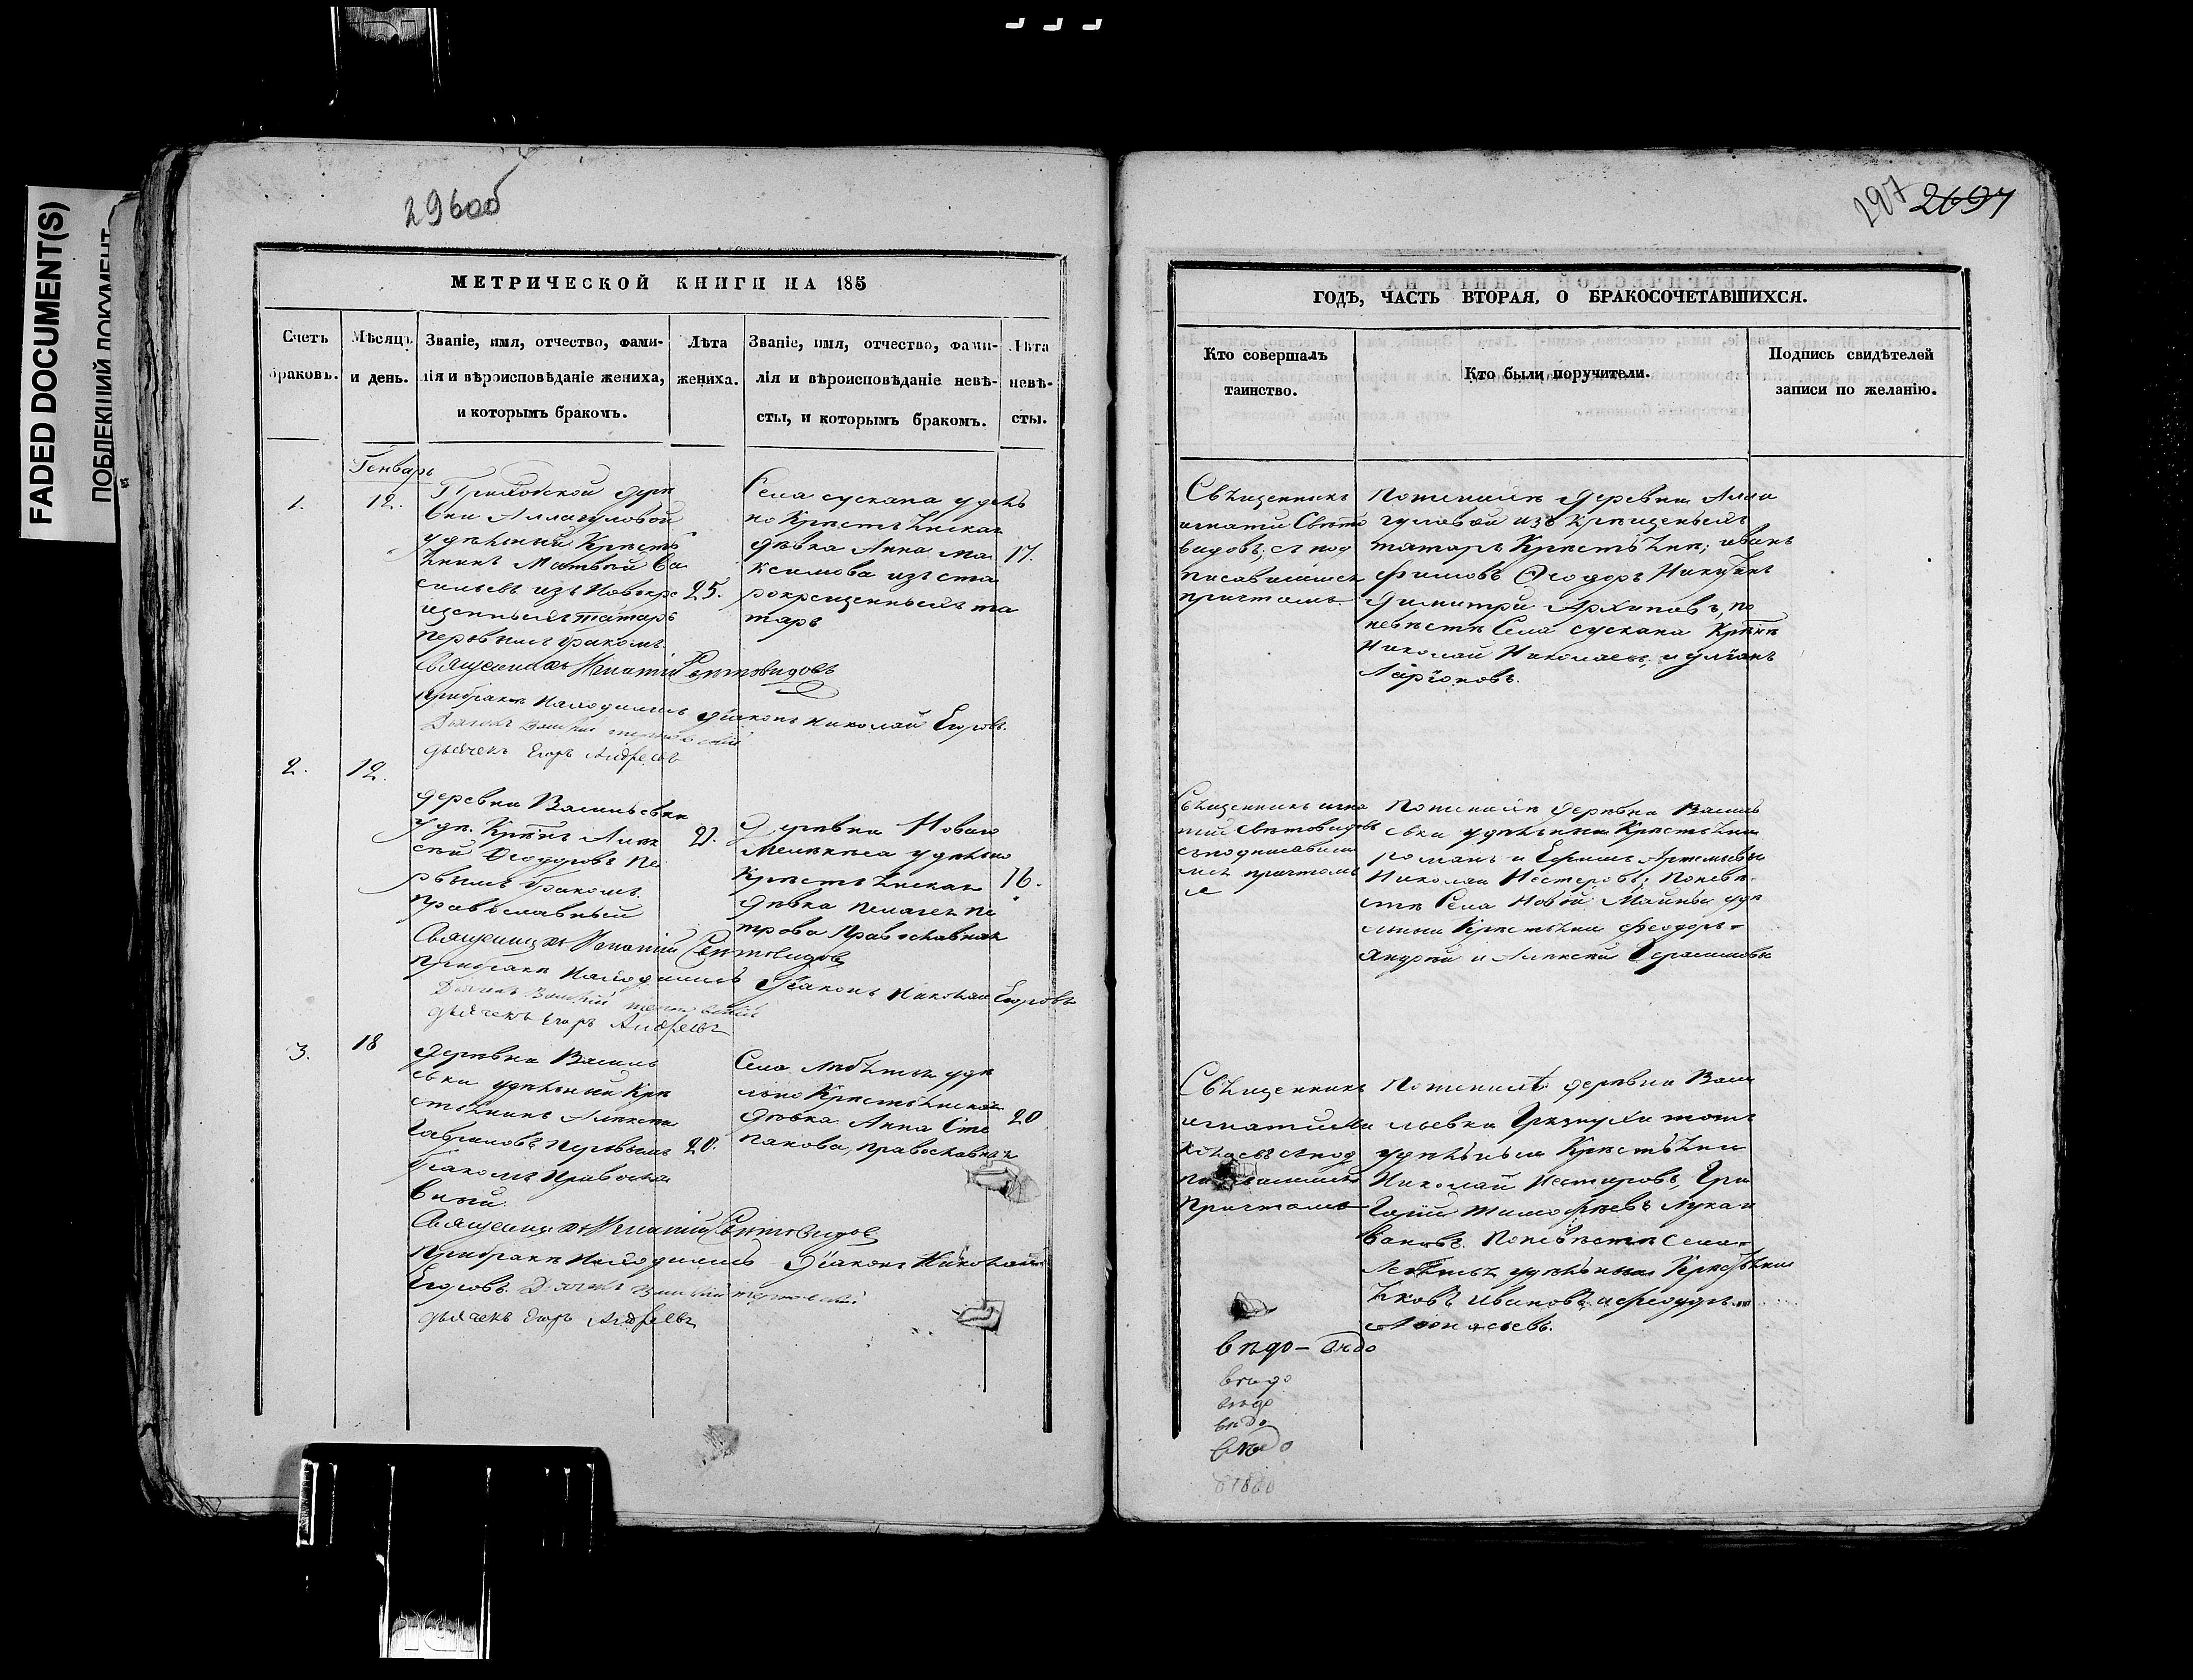 FADED DOCUMENT(S)
ПОБЛЕКШИЙ ДОКУМЕНТ
296об
МЕТРИЧЕСКОЙ КНИГИ НА 185
Счетъ браковъ.
Мѣсяцъ и день.
Званіе, имя, отчество, фами-
лія и вѣроисповѣданіе жениха,
и которымъ бракомъ.
Лѣта
жениха.
Званіе, имя, отчество, фами-
лія и вѣроисповѣданіе невѣ-
сты, и которымъ бракомъ.
Лѣта
невѣ-
сты.
Генварь
1.
12.
Приходской дерѣ
вни Аллагуловой
удѣльный Крѣстѣ
Матвѣй Ва
сильевъ изъ Новокре
щенныхъ татаръ
первымъ бракомъ.
25.
Села сускана удель
но Крѣстьѣнская
дѣвка Анна Ма
ксимова изъ ста
рокрещенныхъ та
таръ
17.
Священникъ Игнатій Свѣтовидовъ
при бракѣ находились діаконъ Николай Егоровъ.
дьячекъ Егоръ Андреевъ
2.
12.
деревни Васильевки
удѣ. Крѣнъ Алек
сѣй Феодоровъ пе
рвымъ бракомъ.
православный
21.
дерѣвни Новаго
Мелекеса удѣльно
Крѣстьѣнская
дѣвка Пелагея Пе
трова Православная
16.
Священникъ Игнатій Свѣтовидовъ
при бракѣ находились діаконъ Николай Егоровъ
дьячекъ Егоръ Андреевъ
3.
18
дерѣвни Василь
евки удѣльный Крѣ
стьѣнинъ Алексѣй
Гавриловъ первымъ
бракомъ Правосла
вный.
20.
Села удѣ
льно Крѣстьѣнская
дѣвка Анна Сте
панова, православная
20
Священникъ Игнатій Свѣтовидовъ
при бракѣ находились діаконъ Николай
Егоровъ.
дьячекъ Егоръ Андреевъ
297 2697
ГОДЪ, ЧАСТЬ ВТОРАЯ, О БРАКОСОЧЕТАВШИХСЯ.
Кто совершалъ
таинство.
Кто были поручители.
Подпись свидѣтелей
записи по желанію.
Свѣщенникъ
игнатій Свѣто
видовъ; съ под
писавшимся
причтомъ.
По женихѣ деревни Алла
гуловой изъ крѣщеныхъ
татаръ Крѣстьѣне; иванъ
Феодоръ
Димитрій Архиповъ, по
невѣстѣ Села сускана Крѣнѣ
Николай Николаевъ, и
Ларіоновъ.
Свѣщенникъ игна
тій свѣтовидовъ
съ подписавши
мся причтомъ
По женихѣ дерѣвни Василь
евки удѣльныи Крѣстьѣни
романъ и Ефимъ Артемьевы
Николай Нестеровъ; по невѣ-
стѣ Села Новой Майны удѣ
льныи Крѣстьѣни феодоръ
андрей и Алексѣй Герасимовы
Свѣщенникъ
игнатій
съ под
причтомъ
По женихѣ дерѣвни Васи
льевки
удѣльныи Крѣстьѣни
Николай Нестеровъ, Гри
горій Тимофѣевъ Лука и
вановъ. По невѣстѣ села
удѣльныи Крѣстьѣнѣ
ѣковъ ивановъ, и феодоръ
Афонасьевъ.
вѣдо - вѣдо
вѣдо
вѣдо
вѣдо
вѣдо